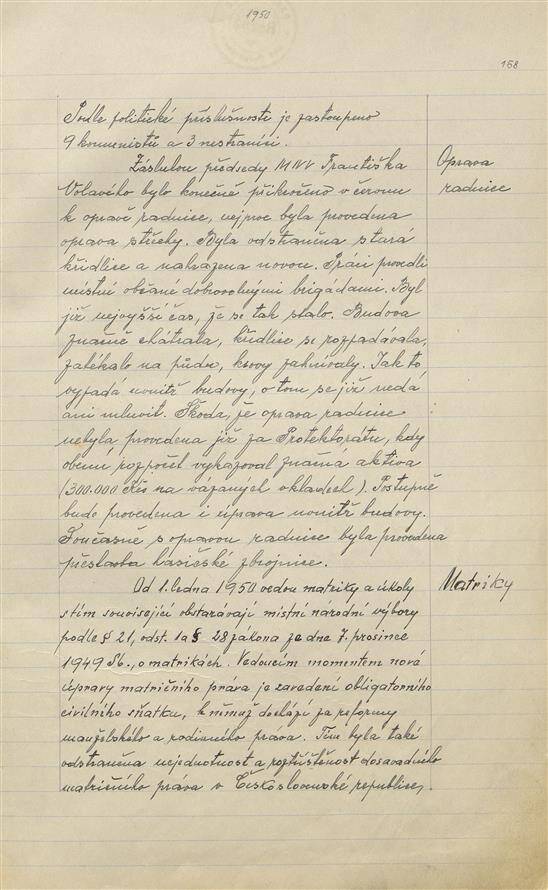 1950
168
Podle politické příslušnosti je zastoupeno
9 komunistů a 3 nestraníci.
Zásluhou předsedy MNV Františka
Oprava
radnice
Volavého bylo konečně přikročeno v červnu
k opravě radnice, nejprve byla provedena
oprava střechy. Byla odstraněna stará
křidlice a nahrazena novou. Práci provedli
místní občané dobrovolnými brigádami. Byl
již nejvyšší čas, že se tak stalo. Budova
značně chátrala, křidlice se rozpadávala,
zatékalo na půdu, krovy zahnívaly. Jak to
vypadá uvnitř budovy, o tom se již nedá
ani mluvit. Škoda, že oprava radnice
nebyla provedena již za Protektorátu, kdy
obecní rozpočet vykazoval značná aktiva
(300.000 Kčs na vázaných vkladech). Postupně
bude provedena i úprava uvnitř budovy.
Současně s opravou radnice byla provedena
přestavba hasičské zbrojnice.
Od 1. ledna 1950 vedou matriky a úkoly
Matriky
s tím související obstarávají místní národní výbory
podle § 21, odst. 1 a § 28 zákona ze dne 7. prosince
1949 Sb., o matrikách. Vedoucím momentem nové
úpravy matričního práva je zavedení obligatorního
civilního sňatku, k němuž dochází za reformy
manželského a rodinného práva. Tím byla také
odstraněna nejednotnost a roztříštěnost dosavadního
matričního práva v Československé republice,